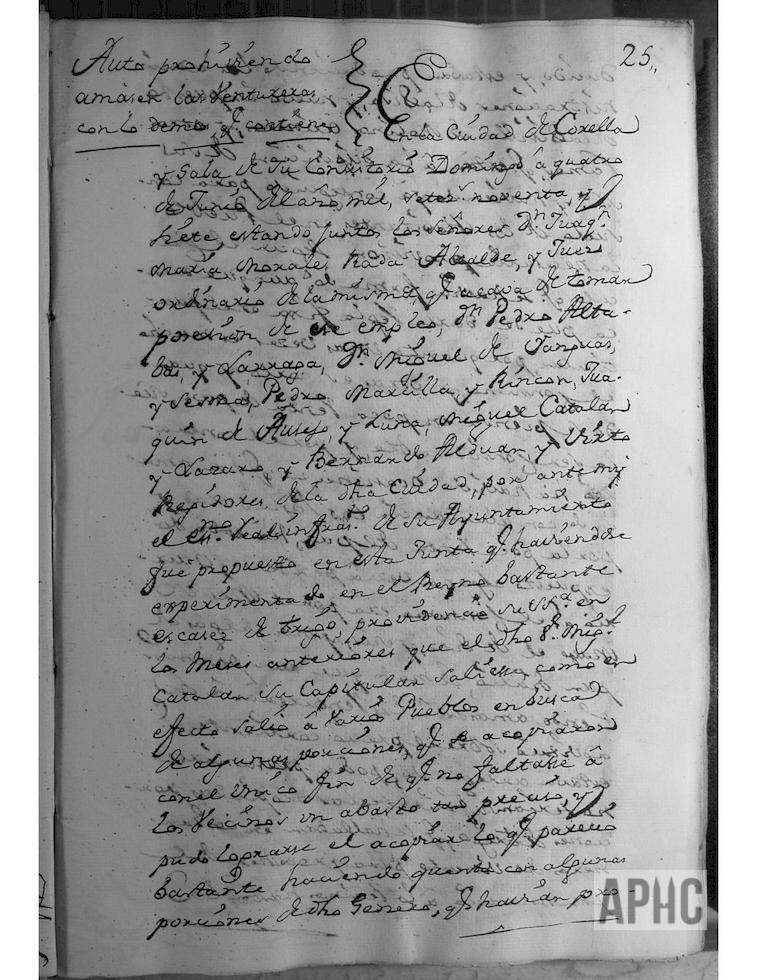 25,,
Auto prohiviendo
amasen las Ventureras
con lo demas q.e contiene
En la Ciudad de Corella
y Sala de su Consistorio Domingo â quatro
de Junio del año mil, setez.s noventa, y
siete, estando juntos los señores D.n Juaq.n
Maria Morales Rada Alcalde, y Juez
ordinario de la misma q.e acava de tomar
posesion de ese empleo, D.n Pedro Alta-
bas, y Larraga, D.n Miguel de Vanguas,
y Sesma, Pedro Marcilla, y Rincon, Jua-
quin de Ausejo, y Luna, Miguel Catalan
y Lazaro, y Bernardo Alduan, y Virto
Regidores de la dha Ciudad, por ante mi
el es.no Real infras.to de su Ayuntamiento
fue propuesto en esta Junta q.e haviendose
experimentado en el Reyno bastante
escasez de trigo, providenció su S.ria en
los Meses anteriores que el dho S.r Mig.l
Catalan su Capitular saliese, como en
efecto salió â varios Pueblos en busca
de algunas porciones, q.e se acopiaron
con el unico fin de q.e no faltase â
los Vecinos un abasto tan preciso, y
pudo lograrse el acopiar lo q.e pareció
bastante haciendo quenta con algunas
porciones de dho Genero, q.e havian pro-
APHC